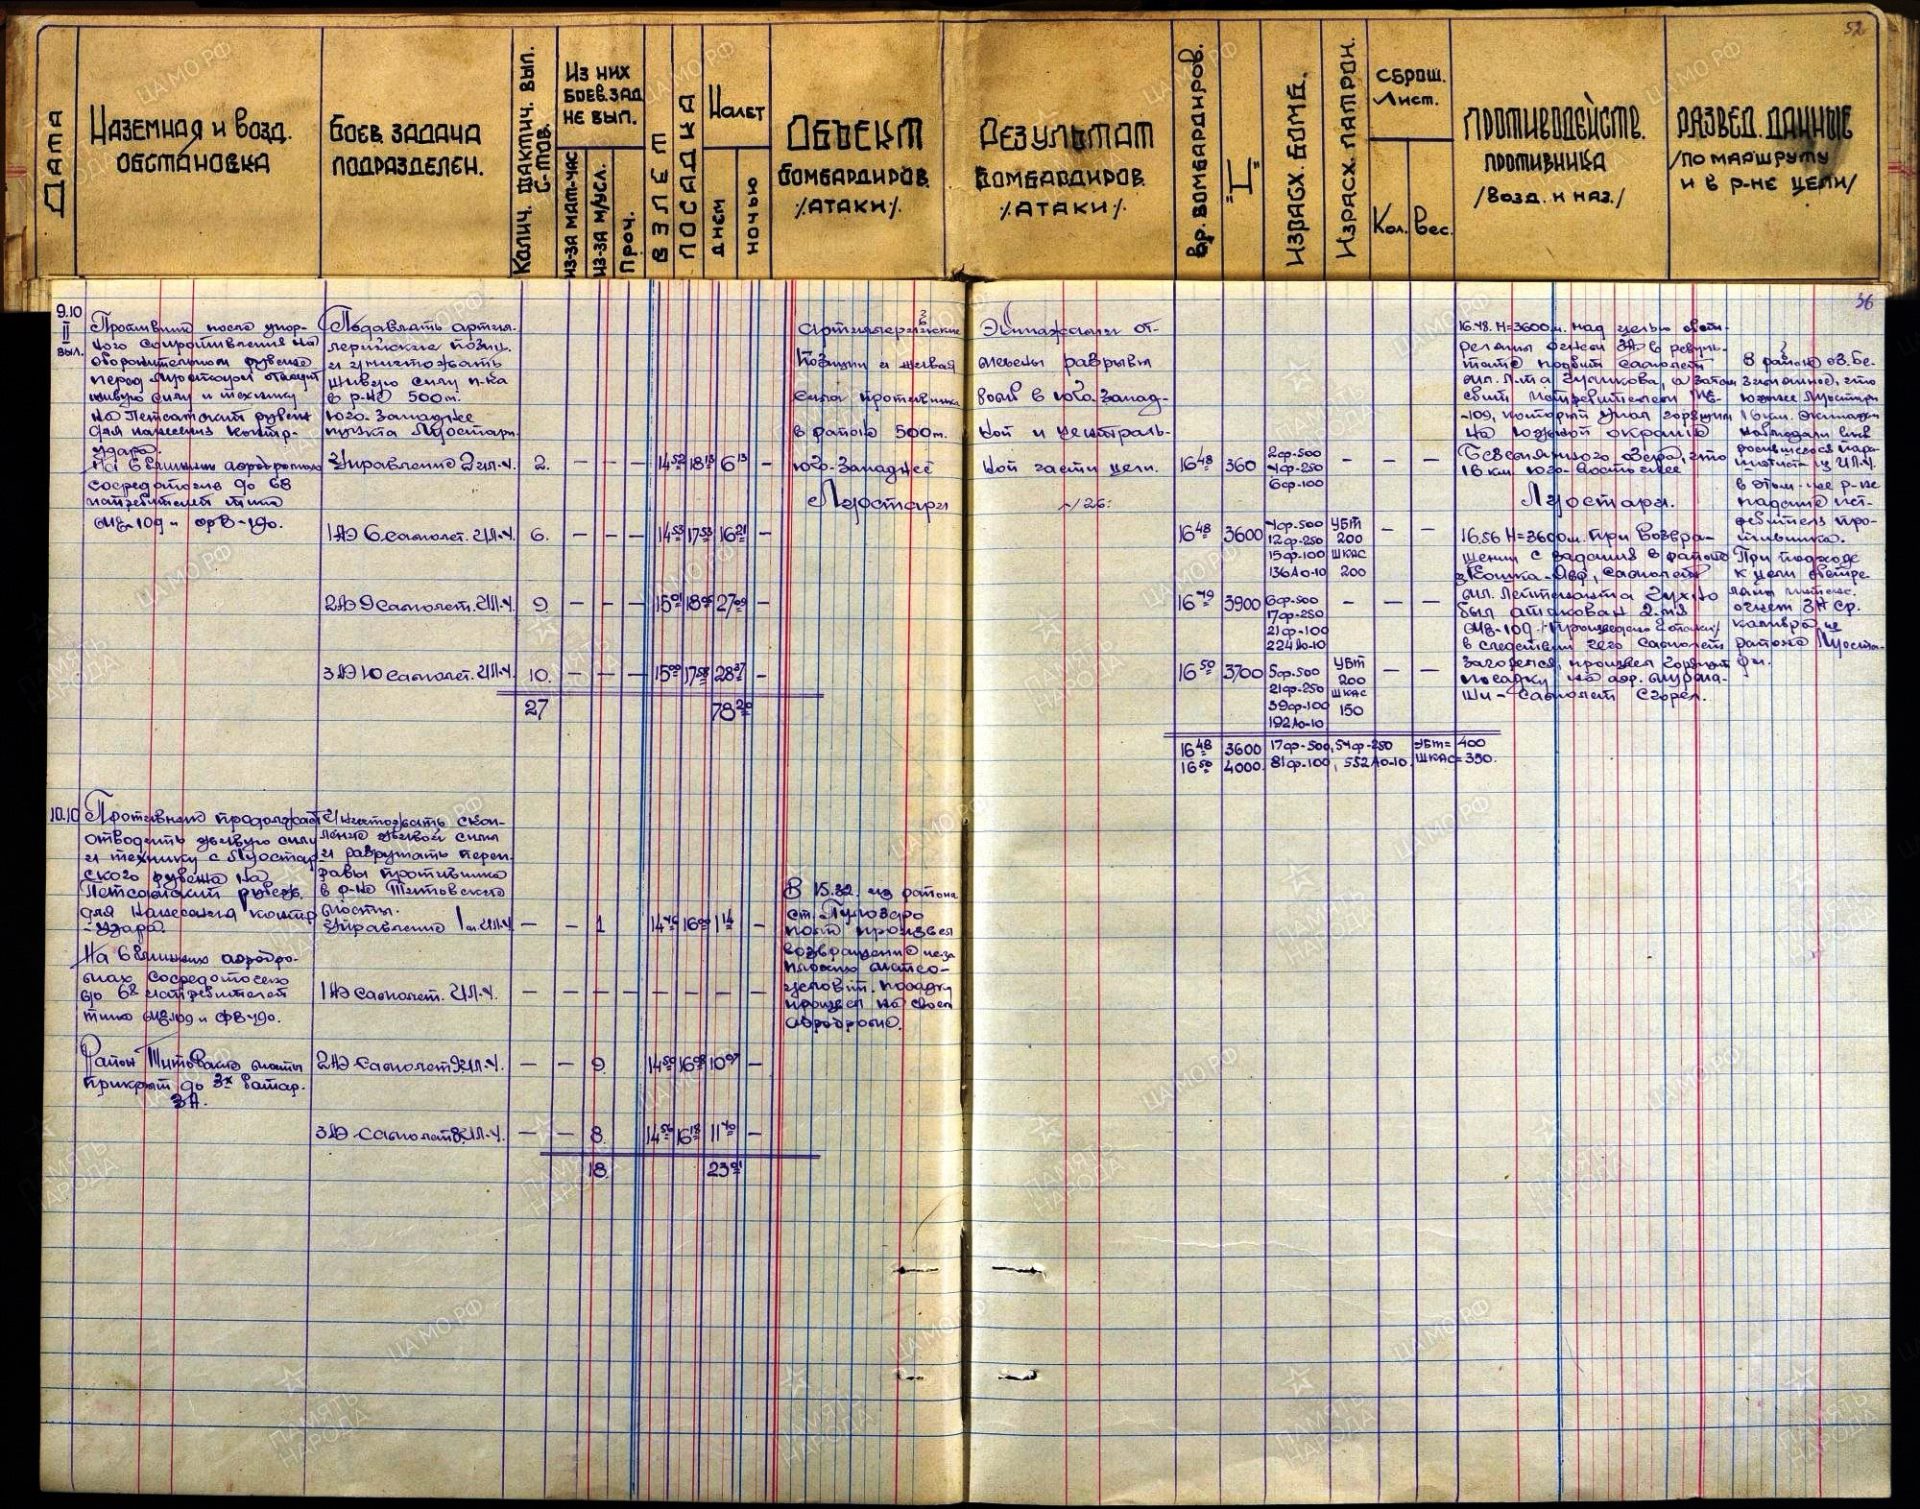 52
Дата
Наземная и возд.
обстановка
Боев. задача
подразделен.
Колич. фактич. вып.
с-тов.
Из них
боев. зад.
не вып.
из-за мат-час
из-за м/усл.
Проч.
Взлет
Посадка
Налет
днем
ночью
Объект
бомбардиров.
/атаки/.
Результат
бомбардиров.
/атаки/.
Вр. бомбардиров.
"Н"
Израсх. бомб.
Израсх. патрон.
сброш.
Лист.
Кол.
Вес.
Противодейств.
противника
/возд. и наз./
Развед. данные
/по маршруту
и в р-не цели/
36
9.10
II
выл.
Противник после упор-
ного сопротивления на
оборонительном рубеже
перед Луостари отводит
живую силу и технику
на Петсамский рубеж
для нанесения контр-
удара.
На 6 ближних аэродромах
сосредоточив до 68
истребителей типа
Ме-109 и ФВ-190.
Подавлять артил-
лерийские позиц.
и уничтожать
живую силу п-ка
в р-не 500 м.
юго-западнее
пункта Луостари.
Управление 2 ил-4. 2. - - - 14 52 18 13 6 13 -
1 АЭ 6 самолет. ИЛ-4. 6. - - - 14 53 17 53 16 21 -
2 АЭ 9 самолет. ИЛ-4. 9 - - - 15 01 18 05 27 09 -
3 АЭ 10 самолет. ИЛ-4. 10. - - - 15 00 17 58 28 37 -
27 78 20
Артиллерийские
позиции и живая
сила противника
в районе 500 м.
юго-западнее
Луостари
Экипажами от-
мечены разрывы
бомб в юго-запад-
ной и централь-
ной части цели.
16 48 360 2 фр-500 - - -
4 фр-250
6 фр-100
16 48 3600 4 фр-500 УБТ - -
12 фр-250 200
15 фр-100 ШКАС
136 Ао-10 200
16 49 3900 6 фр-500 - - -
17 фр-250
21 фр-100
224 Ао-10
16 50 3700 5 фр-500 УБТ - -
21 фр-250 200
39 фр-100 ШКАС
192 Ао-10 150
16 48 3600 17 фр-500, 54 фр-250 УБТ = 400
16 50 4000. 81 фр-100, 552 Ао-10. ШКАС = 350.
16.48. Н=3600 м. над целью обст-
релян огнем ЗА в резуль-
тате подбит самолет
мл. л-та а затем
сбит истребителем Ме-
-109, который упал горящим
на южной окраине
озера, что
16 км. юго-восточнее
Луостари.
16.56 Н=3600 м. при возвра-
щении с задания в районе
самолет
мл. лейтенанта
был атакован 2-мя
Ме-109 /произведено 2 атаки/
в следствии чего самолет
загорелся, произвел горящим
посадку на аэр. Мурма-
ши - самолет сгорел.
В районе оз. Бе-
что
южнее Луостари
16 км. экипажи
наблюдали
пара-
шютиста из ИЛ-4.
в этом-же р-не
падение ист-
ребителя про-
тивника.
При подходе
к цели обстре-
огнем ЗА ср.
калибра из
района Луоста-
ри.
10.10 Противник продолжает
отводить живую силу
и технику с Луостар-
ского рубежа на
Петсамский рубеж
для нанесения контр
-удара.
На 6 ближних аэродро-
мах сосредоточено
до 68 истребителей
типа Ме-109 и ФВ-190.
Район Титовского моста
прикрыт до 3х батар.
ЗА.
Уничтожать скоп-
ление живой силы
и разрушать переп-
равы противника
в р-не Титовского
моста.
Управление 1 с. ИЛ-4. - - 1 14 46 16 00 1 14 -
1 АЭ самолет. ИЛ-4. - - - - - - - -
2 АЭ самолет 9 ИЛ-4. - - 9 14 50 16 08 10 07 -
3 АЭ самолет 8 ИЛ-4. - - 8. 14 56 16 18 11 40 -
18 23 01
В 15.32. из района
ст. Пулозеро
полк произвел
возвращение из-за
плохих метео-
условий. посадку
произвел на своем
аэродроме.
ЦАМО.РФ
ПАМЯТЬ
НАРОДА